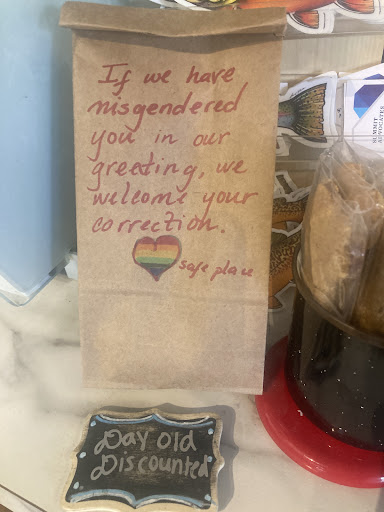 If we have
misgendered
you in our
greeting, we
welcome your
correction.
safe place
SUMMIT
ADVOCATES
Day old
Discounted